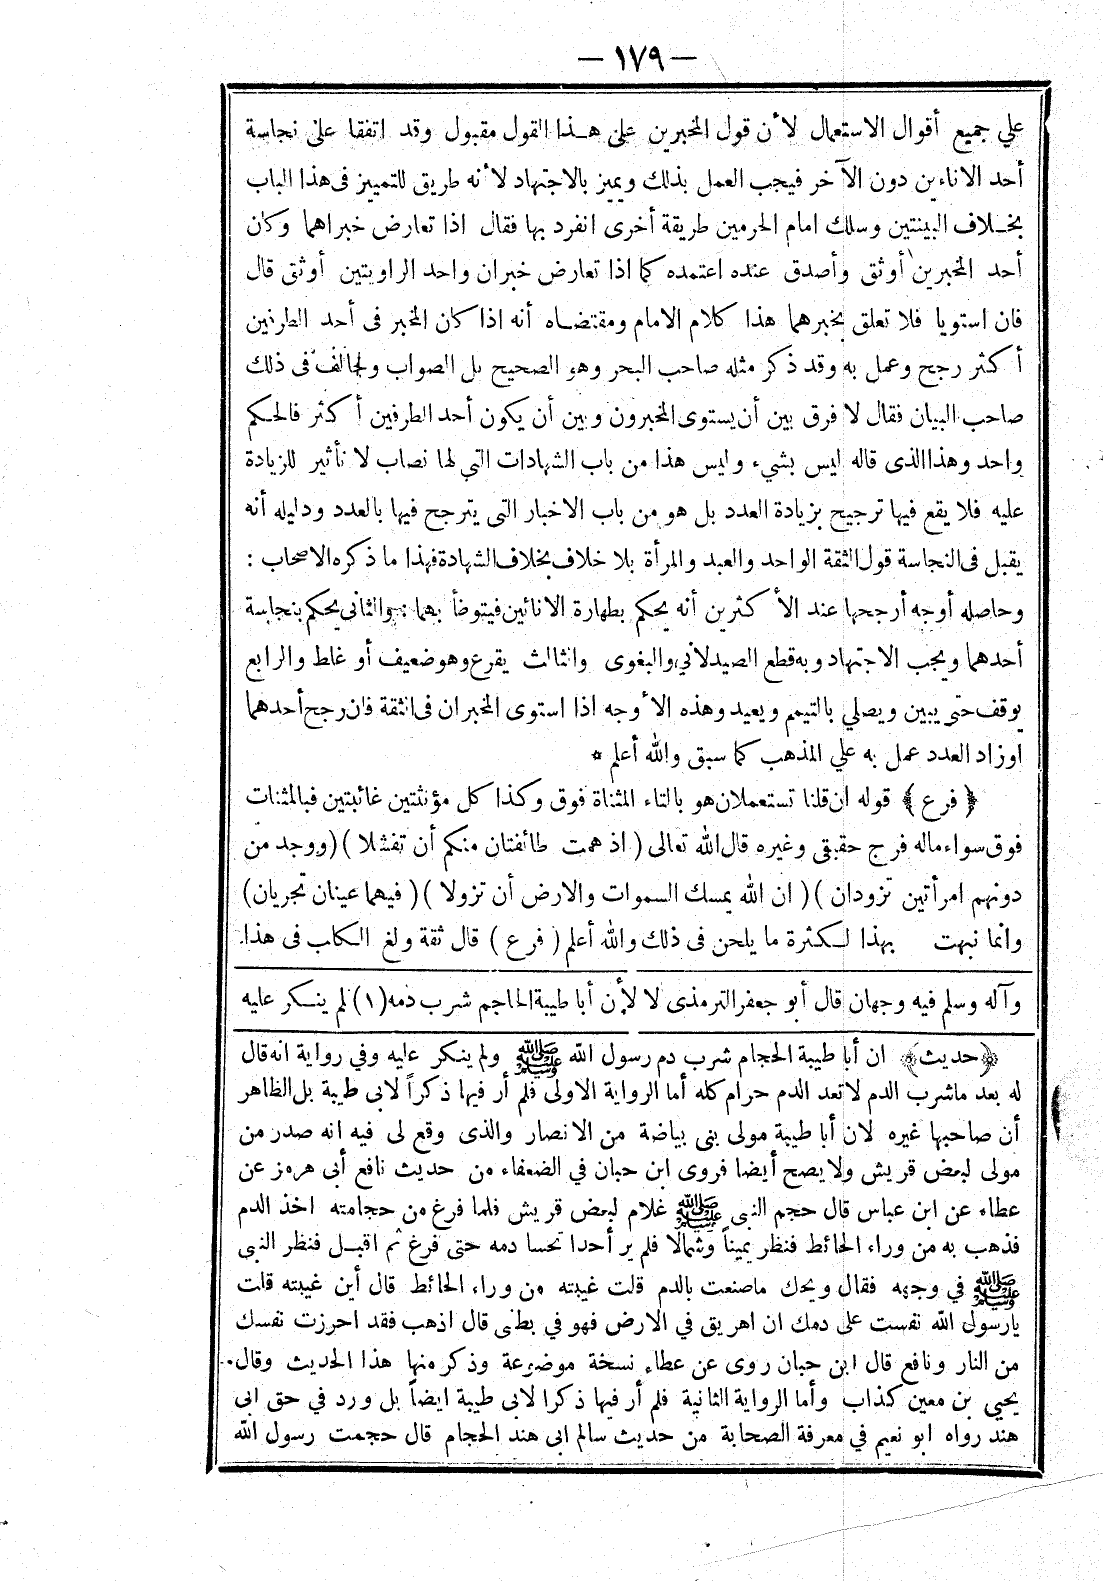 — ١٧٩ —
علي جميع أقوال الاستعمال لأن قول المخبرين على هذا القول مقبول وقد اتفقا على نجاسة
أحد الاناءين دون الآخر فيجب العمل بذلك ويميز بالاجتهاد لأنه طريق للتمييز فى هذا الباب
بخلاف البينتين وسلك امام الحرمين طريقة أخرى انفرد بها فقال اذا تعارض خبراهما وكان
أحد المخبرين أوثق وأصدق عنده اعتمده كما اذا تعارض خبران واحد الراويتين أوثق قال
فان استويا فلا تعلق بخبرهما هذا كلام الامام ومقتضاه أنه اذا كان المخبر فى أحد الطرفين
أكثر رجح وعمل به وقد ذكر مثله صاحب البحر وهو الصحيح بل الصواب وخالف فى ذلك
صاحب البيان فقال لا فرق بين أن يستوى المخبرون وبين أن يكون أحد الطرفين أكثر فالحكم
واحد وهذا الذى قاله ليس بشيء وليس هذا من باب الشهادات التي لها نصاب لا تأثير للزيادة
عليه فلا يقع فيها ترجيح بزيادة العدد بل هو من باب الاخبار التى يترجح فيها بالعدد ودليله أنه
يقبل فى النجاسة قول الثقة الواحد والعبد والمرأة بلا خلاف بخلاف الشهادة فهذا ما ذكره الاصحاب :
وحاصله أوجه أرجحها عند الأكثرين أنه يحكم بطهارة الانائين فيتوضأ بهما : والثانى يحكم بنجاسة
أحدهما ويجب الاجتهاد وبه قطع الصيدلاني والبغوى والثالث يقرع وهو ضعيف أو غلط والرابع
يوقف حتى يبين ويصلي بالتيمم ويعيد وهذه الأوجه اذا استوى المخبران فى الثقة فان رجح أحدهما
اوزاد العدد عمل به علي المذهب كما سبق والله أعلم *
﴿ فرع ﴾ قوله ان قلنا تستعملان هو بالتاء المثناة فوق وكذا كل مؤنثتين غائبتين فبالمثنات
فوق سواء ماله فرج حقيقى وغيره قال الله تعالى ( اذ همت طائفتان منكم أن تفشلا ) ( ووجد من
دونهم امرأتين تزودان ) ( ان الله يمسك السموات والارض أن تزولا ) ( فيهما عينان تجريان)
وانما نبهت بهذا لكثرة ما يلحن فى ذلك والله أعلم ( فرع ) قال ثقة ولغ الكاب فى هذا
وآله وسلم فيه وجهان قال أبو جعفر الترمذى لا لأن أبا طيبة الحاجم شرب دمه(١) لم ينكر عليه
﴿حديث﴾ ان أبا طيبة الحجام شرب دم رسول الله ﷺ ولم ينكر عليه وفي رواية انه قال
له بعد ماشرب الدم لا تعد الدم حرام كله أما الرواية الاولى فلم أر فيها ذكراً لابى طيبة بل الظاهر
أن صاحبها غيره لان أبا طيبة مولى بنى بياضة من الانصار والذى وقع لى فيه انه صدر من
مولى لبعض قريش ولا يصح أيضا فروى ابن حبان في الضعفاء من حديث نافع أبى هرمز عن
عطاء عن ابن عباس قال حجم النبى ﷺ غلام لبعض قريش فلما فرغ من حجامته اخذ الدم
فذهب به من وراء الحائط فنظر يميناً وشمالا فلم ير أحدا تحسا دمه حتى فرغ ثم اقبل فنظر النبي
ﷺ في وجهه فقال ويحك ماصنعت بالدم قلت غيبته من وراء الحائط قال أين غيبته قلت
يارسول الله نفست على دمك ان اهريق في الارض فهو في بطنى قال اذهب فقد احرزت نفسك
من النار ونافع قال ابن حبان روى عن عطاء نسخة موضوعة وذكر منها هذا الحديث وقال
يحيي بن معين كذاب وأما الرواية الثانية فلم أر فيها ذكرا لابى طيبة ايضاً بل ورد في حق ابى
هند رواه ابو نعيم في معرفة الصحابة من حديث سالم ابى هند الحجام قال حجمت رسول الله